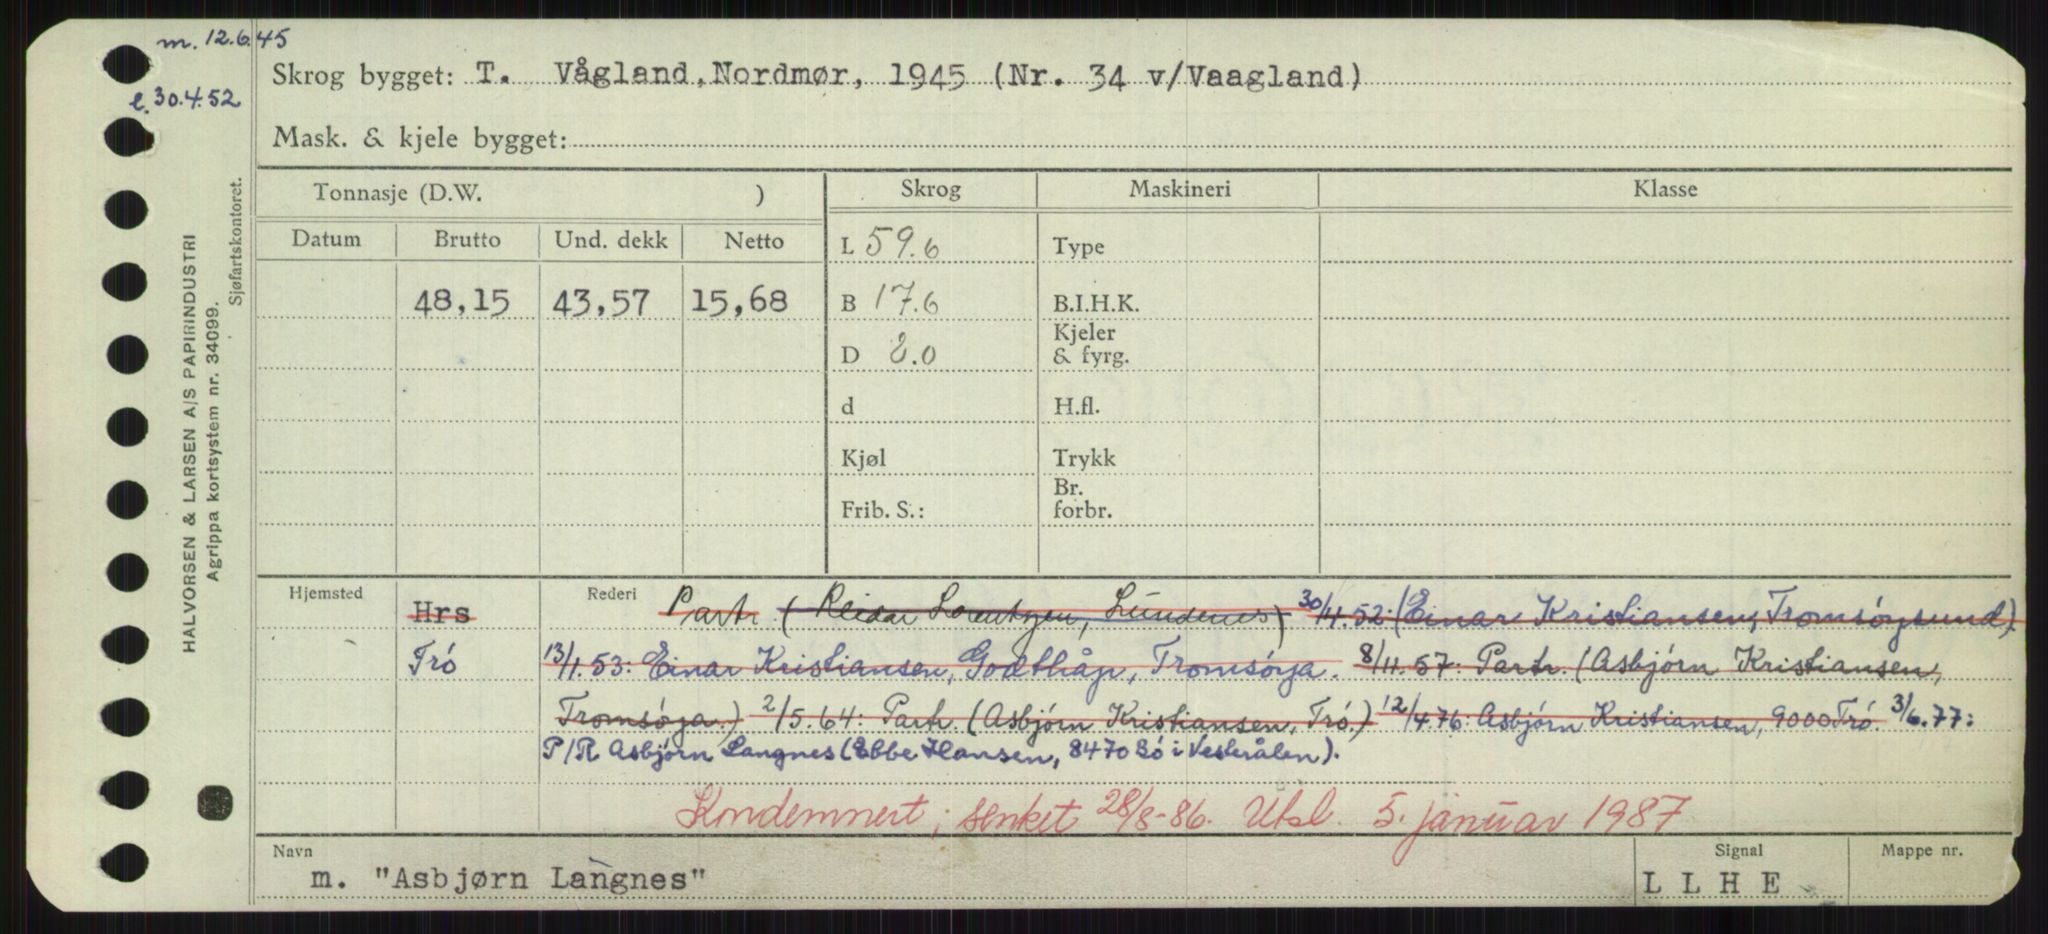 m. 12.6.45
Skrog bygget: T. Vågland, Nordmør, 1945 (Nr. 34 v/Vaagland)
e. 30.4.52
Mask. & kjele bygget:
HALVORSEN & LARSEN A/S PAPIRINDUSTRI
Agrippa kortsystem nr. 34099.
Sjøfartskontoret.
Tonnasje (D.W. ) Skrog Maskineri Klasse
Datum Brutto Und. dekk Netto L 59.6 Type
48,15 43,57 15,68 B 17.6 B.I.H.K.
Kjeler
D 8.0 & fyrg.
d H.fl.
Kjøl Trykk
Br.
Frib. S.: forbr.
Hjemsted Hrs Rederi Partr. (Reidar Lorentzen, Lundenes) 30/4.52: (Einar Kristiansen, Tromsöysund)
Trö 13/1.53: Einar Kristiansen, Godthåp, Tromsöya. 8/11.57: Partr. (Asbjörn Kristiansen,
Tromsöya.) 2/5.64: Partr. (Asbjörn Kristiansen, Trö.) 12/4.76: Asbjörn Kristiansen, 9000 Trö. 3/6.77:
P/R Asbjörn Langnes (Ebbe Hansen, 8470 Bö i Vesterålen).
Kondemnert, senket 28/8-86. Utsl. 5. januar 1987
Navn Signal Mappe nr.
m. "Asbjørn Langnes" L L H E